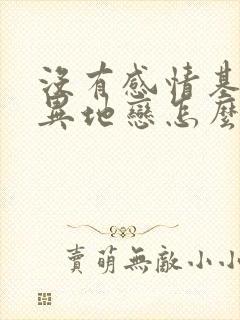 沒有感情基
異地戀怎麼
賣萌無敵小小